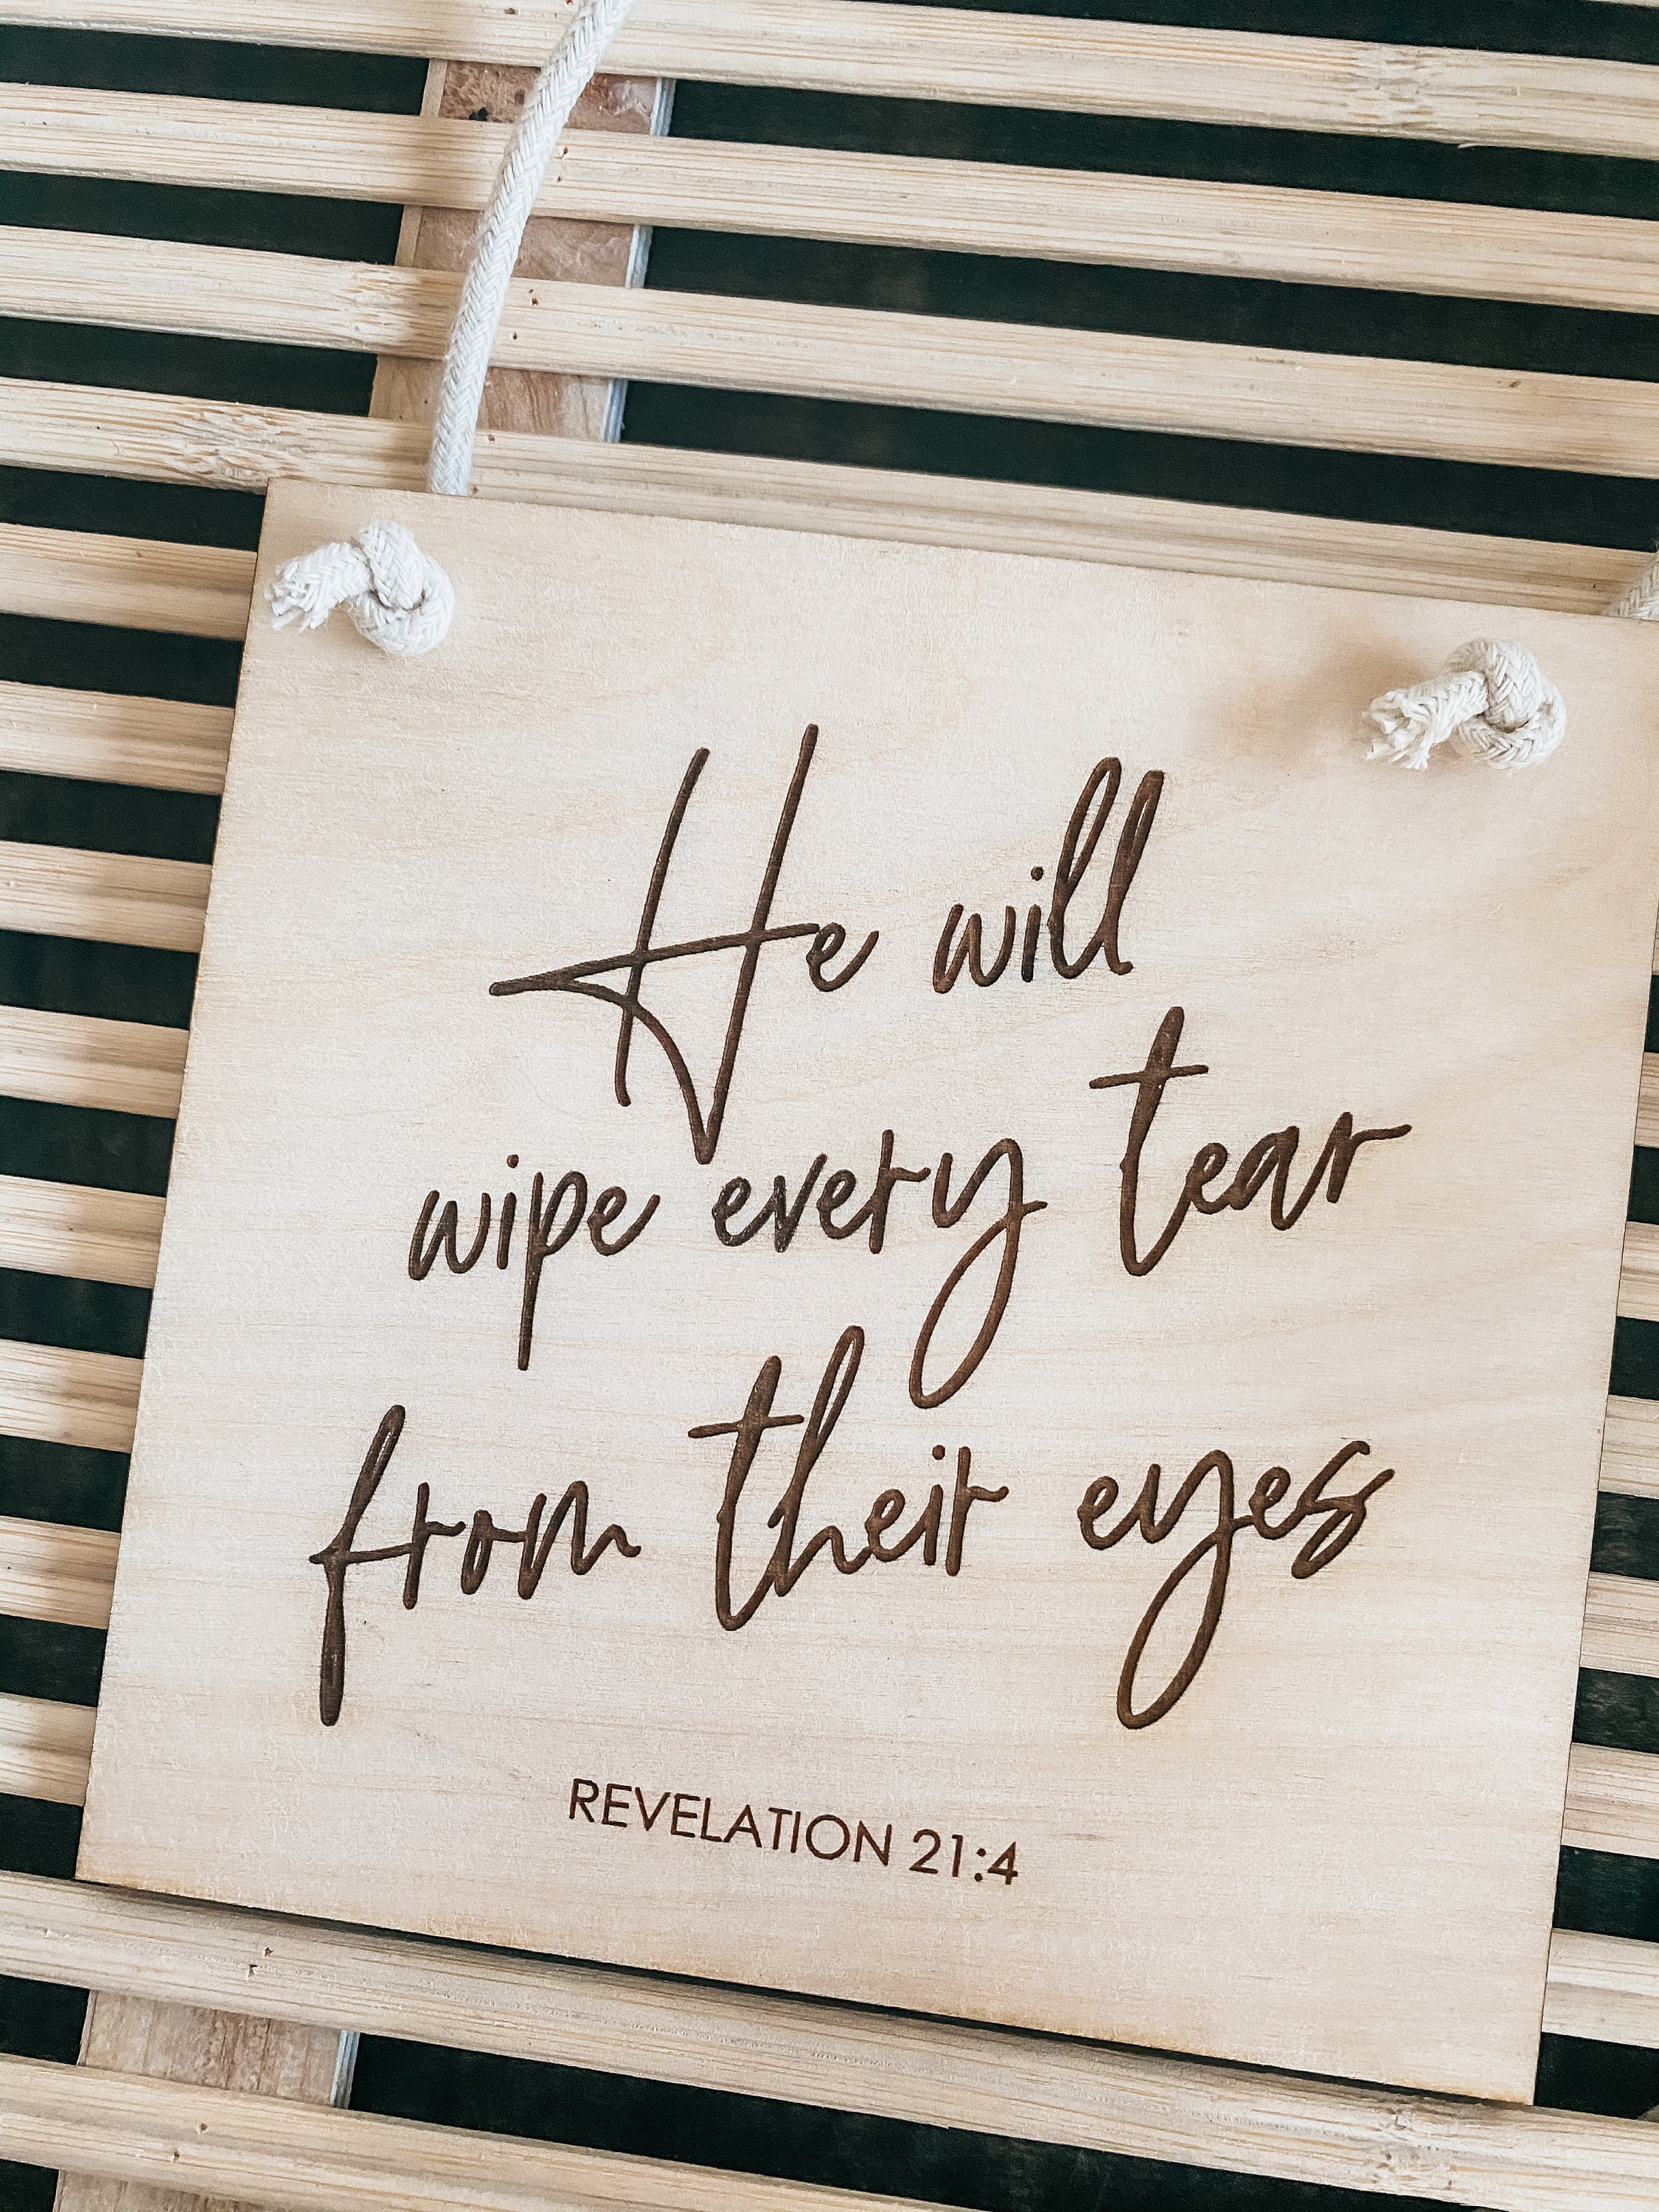 He will
wipe every tear
from their eyes
REVELATION 21:4